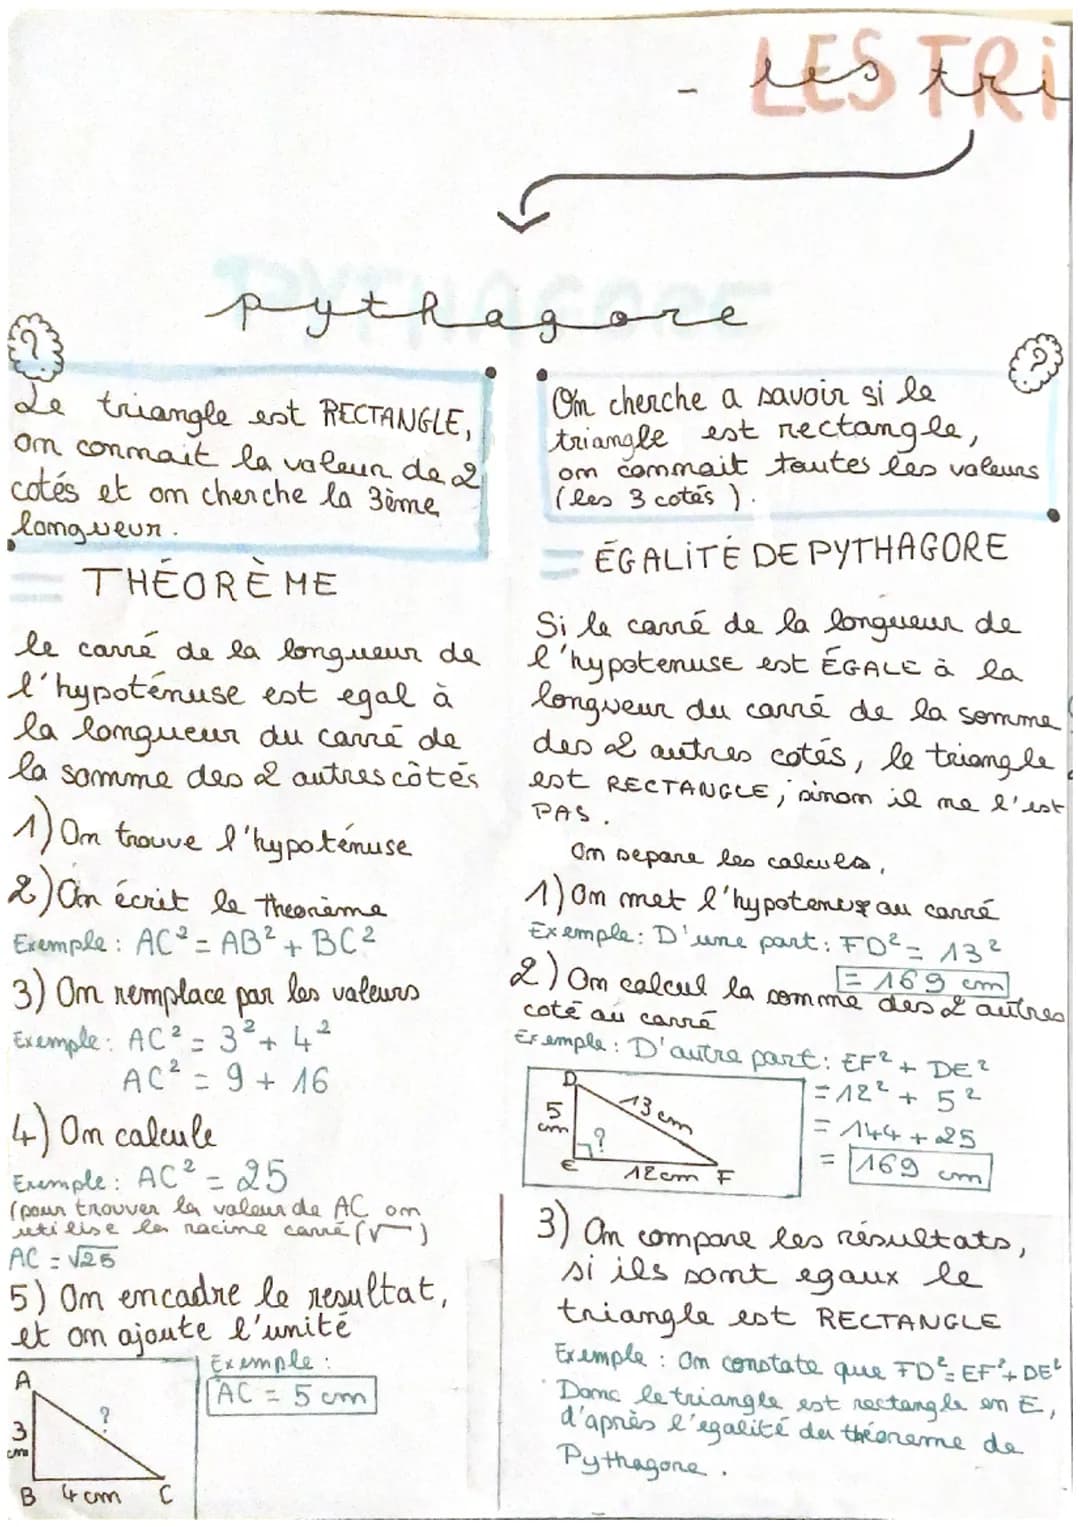 LES TRI
- les tri
PYTHAGORE
pythagore
?
Le triangle est RECTANGLE,
on connait la valeur de 2
cotés et on cherche la 3ème
longueur.
THÉORÈME
le carré de la longueur de
l'hypoténuse est egal à
la longueur du carré de
la somme des 2 autres côtés
1) On trouve l'hypoténuse
2) On écrit le theorème
Exemple : AC² = AB² + BC²
3) On remplace par les valeurs
Exemple : AC² = 3² + 4²
AC² = 9 + 16
4) On calcule
Exemple : AC² = 25
(pour trouver la valeur de AC on
utilise la racine carré (√‾)
AC = √25
5) On encadre le resultat,
et on ajoute l'unité
Exemple :
AC = 5 cm
A
?
3
cm
B 4 cm C
?
On cherche a savoir si le
triangle est rectangle,
on connait toutes les valeurs
(les 3 cotés).
ÉGALITÉ DE PYTHAGORE
Si le carré de la longueur de
l'hypotenuse est ÉGALE à la
longueur du carré de la somme
des 2 autres cotés, le triangle
est RECTANGLE, sinon il ne l'est
PAS.
On separe les calculs,
1) On met l'hypotenuse au carré
Exemple : D'une part : FD² = 13²
= 169 cm
2) On calcul la somme des 2 autres
coté au carré
Exemple : D'autre part : EF² + DE²
= 12² + 5²
= 144 + 25
= 169 cm
D
13 cm
5
cm
?
E
12 cm F
3) On compare les résultats,
si ils sont egaux le
triangle est RECTANGLE
Exemple : On constate que FD² = EF² + DE²
Donc le triangle est rectangle en E,
d'après l'egalité du théoreme de
Pythagore.